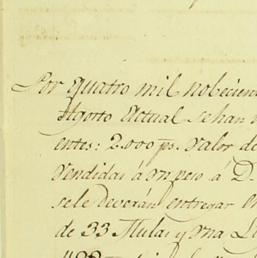 Por quatro mil nobecien
Agosto Actual se han
entes: 2.000 ps. valor de
vendidas á un peso á D.
se le deverán entregar
de 33 Mulas y una